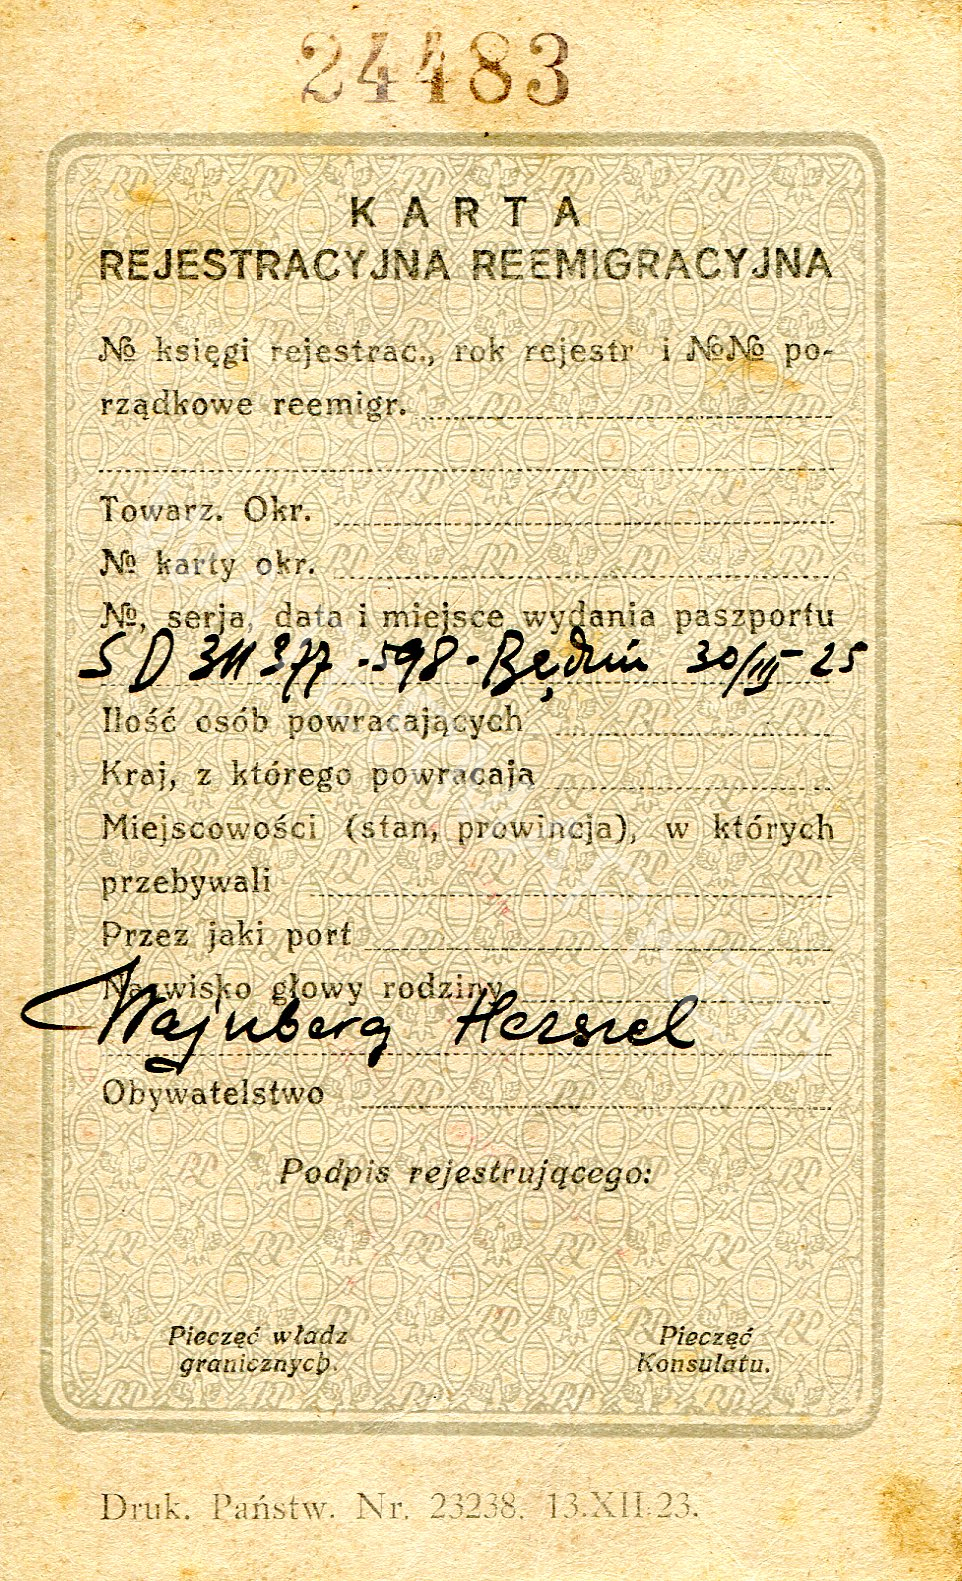 24483
KARTA
REJESTRACYJNA REEMIGRACYJNA
№ księgi rejestrac., rok rejestr i №№ po-
rządkowe reemigr.
Towarz. Okr.
№ karty okr.
№, serja, data i miejsce wydania paszportu
SD 311377 - 598 - Będzin 30/III - 25
Ilość osób powracających
Kraj, z którego powracają
Miejscowości (stan, prowincja), w których
przebywali
Przez jaki port
Nazwisko głowy rodziny
Wajnberg Herszel
Obywatelstwo
Podpis rejestrującego:
Pieczęć władz granicznych.
Pieczęć Konsulatu.
Druk. Państw. Nr. 23238. 13.XII.23.